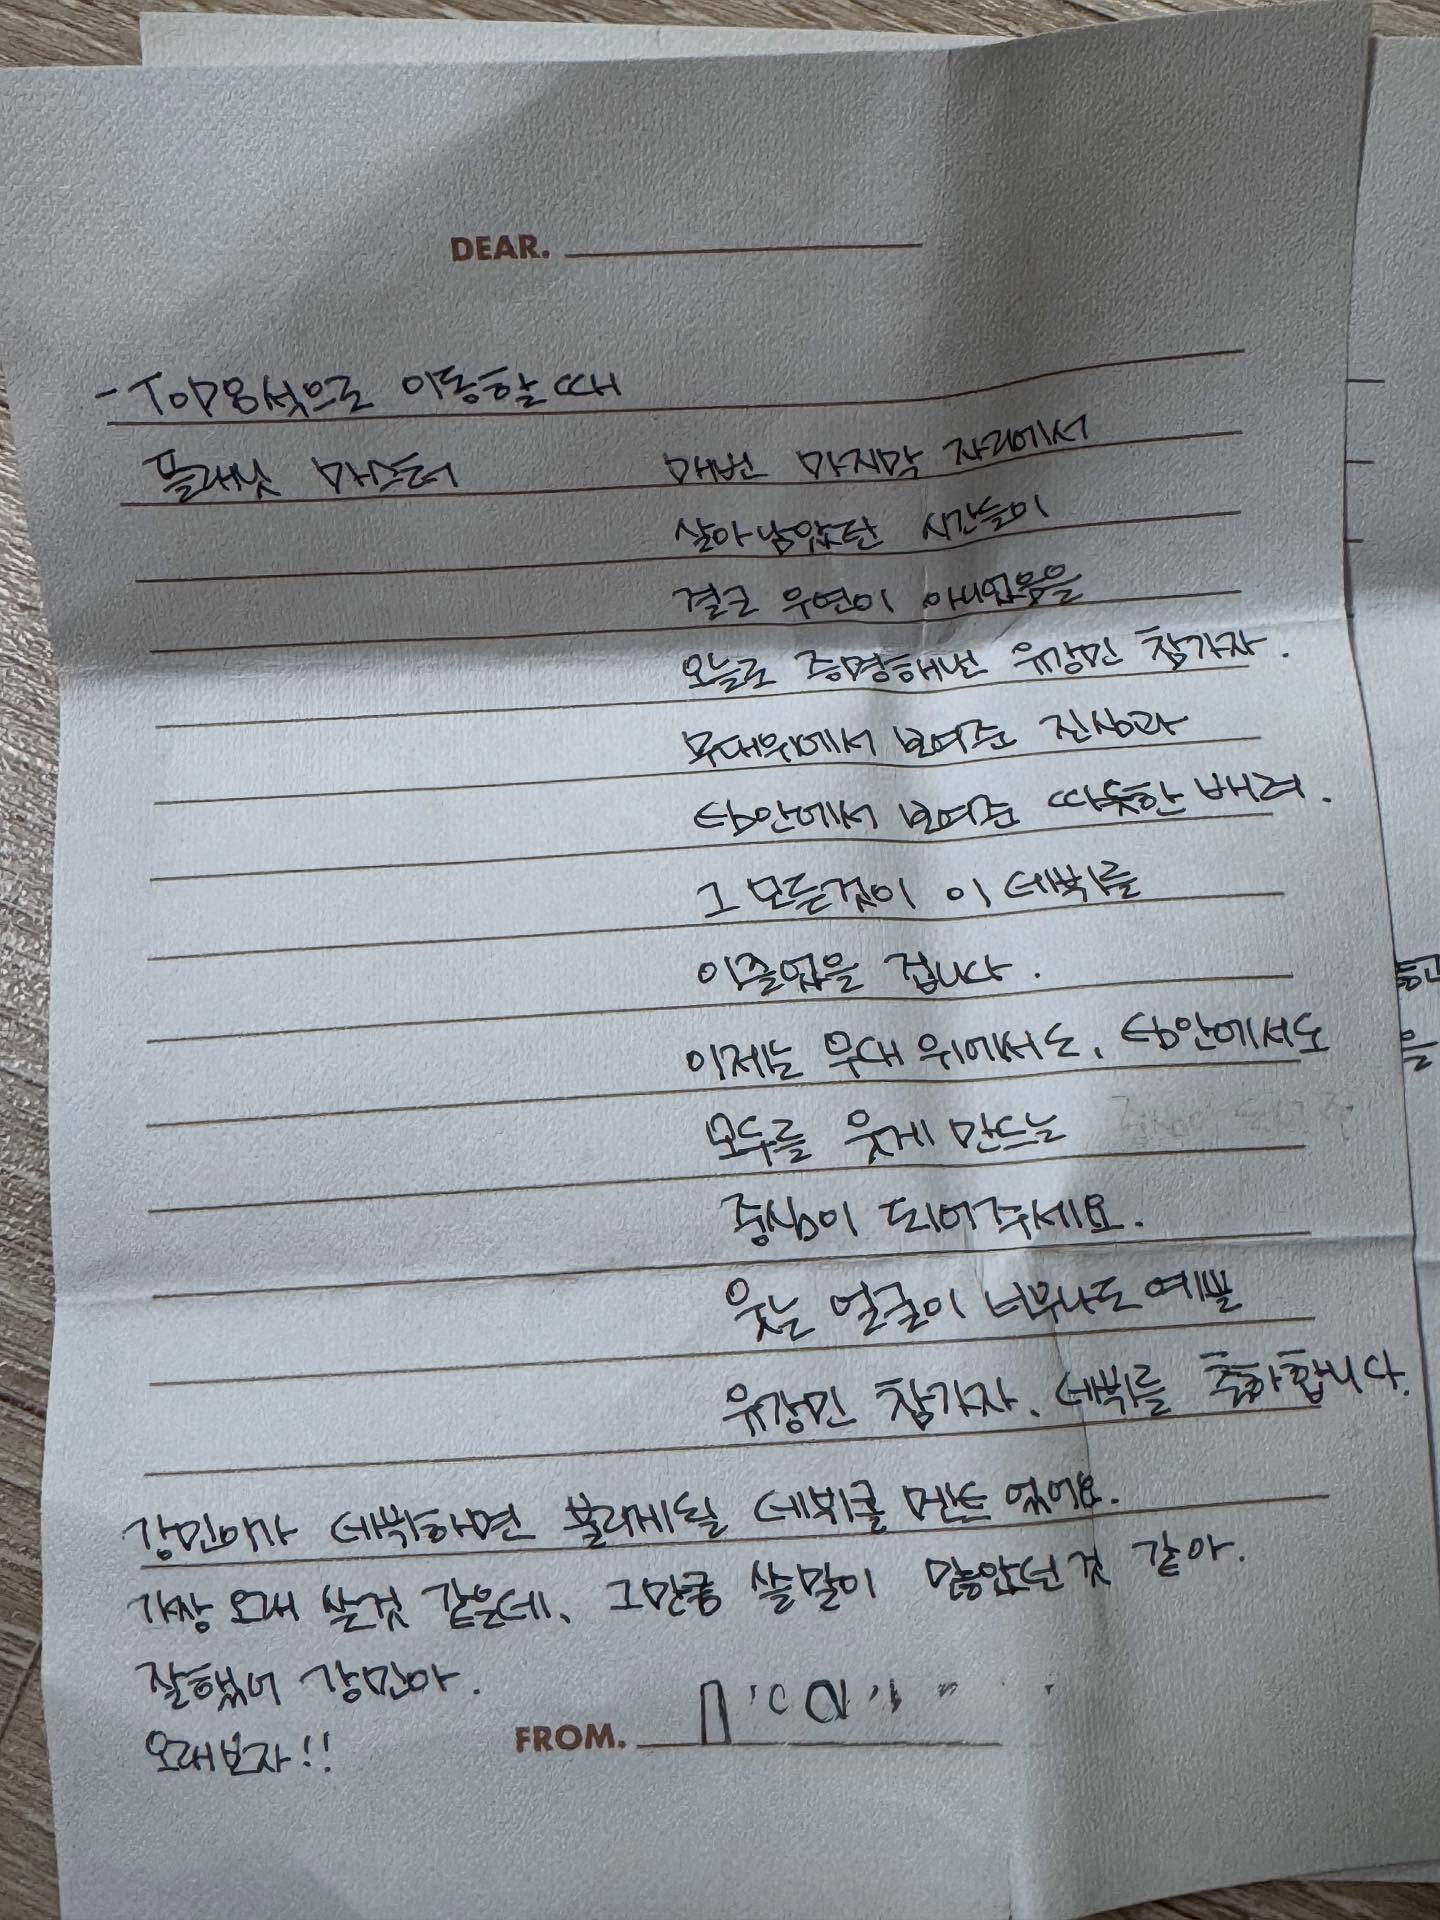 DEAR.
- TOP8석으로 이동할 때
플래닛 마스터 매번 마지막 자리에서
살아남았단 시간들이
결코 우연이 아니었음을
오늘로 증명해낸 유강민 참가자.
무대위에서 보여준 진심과
팀안에서 보여준 따뜻한 배려.
그 모든것이 이 데뷔를
이끌었을 겁니다.
이제는 무대 위에서도, 팀안에서도
모두를 웃게 만드는
중심이 되어주세요.
웃는 얼굴이 너무나도 예쁜
유강민 참가자. 데뷔를 축하합니다.
강민이가 데뷔하면 불리게될 데뷔콜 멘트 였어요.
가장 오래 쓴것 같은데, 그만큼 쓸말이 많았던것 같아.
잘했어 강민아.
오래보자!!
FROM.